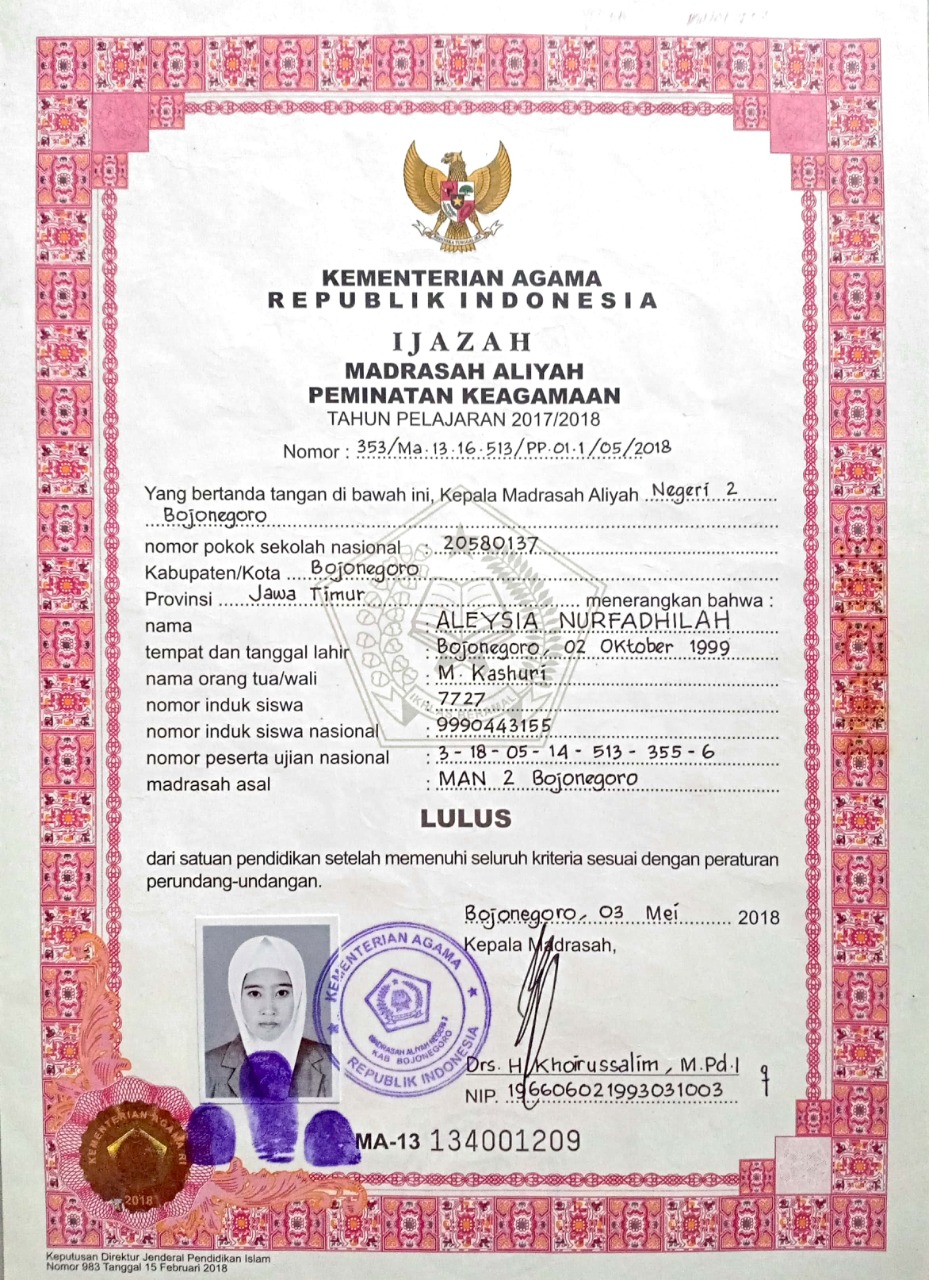 KEMENTERIAN AGAMA
REPUBLIK INDONESIA
IJAZAH
MADRASAH ALIYAH
PEMINATAN KEAGAMAAN
TAHUN PELAJARAN 2017/2018
Nomor : 353/Ma.13.16.513/PP.01.1/05/2018
Yang bertanda tangan di bawah ini, Kepala Madrasah Aliyah Negeri 2
Bojonegoro
nomor pokok sekolah nasional : 20580137
Kabupaten/Kota Bojonegoro
Provinsi Jawa Timur menerangkan bahwa :
nama : ALEYSIA NURFADHILAH
tempat dan tanggal lahir : Bojonegoro, 02 Oktober 1999
nama orang tua/wali : M. Kashuri
nomor induk siswa : 7727
nomor induk siswa nasional : 9990443155
nomor peserta ujian nasional : 3-18-05-14-513-355-6
madrasah asal : MAN 2 Bojonegoro
LULUS
dari satuan pendidikan setelah memenuhi seluruh kriteria sesuai dengan peraturan
perundang-undangan.
Bojonegoro, 03 Mei 2018
Kepala Madrasah,
KEMENTERIAN AGAMA
MADRASAH ALIYAH NEGERI 2
KAB BOJONEGORO
REPUBLIK INDONESIA
Drs. H. Khoirussalim, M.Pd.I
NIP. 196606021993031003
MA-13 134001209
KEMENTERIAN AGAMA RI
2018
Keputusan Direktur Jenderal Pendidikan Islam
Nomor 983 Tanggal 15 Februari 2018